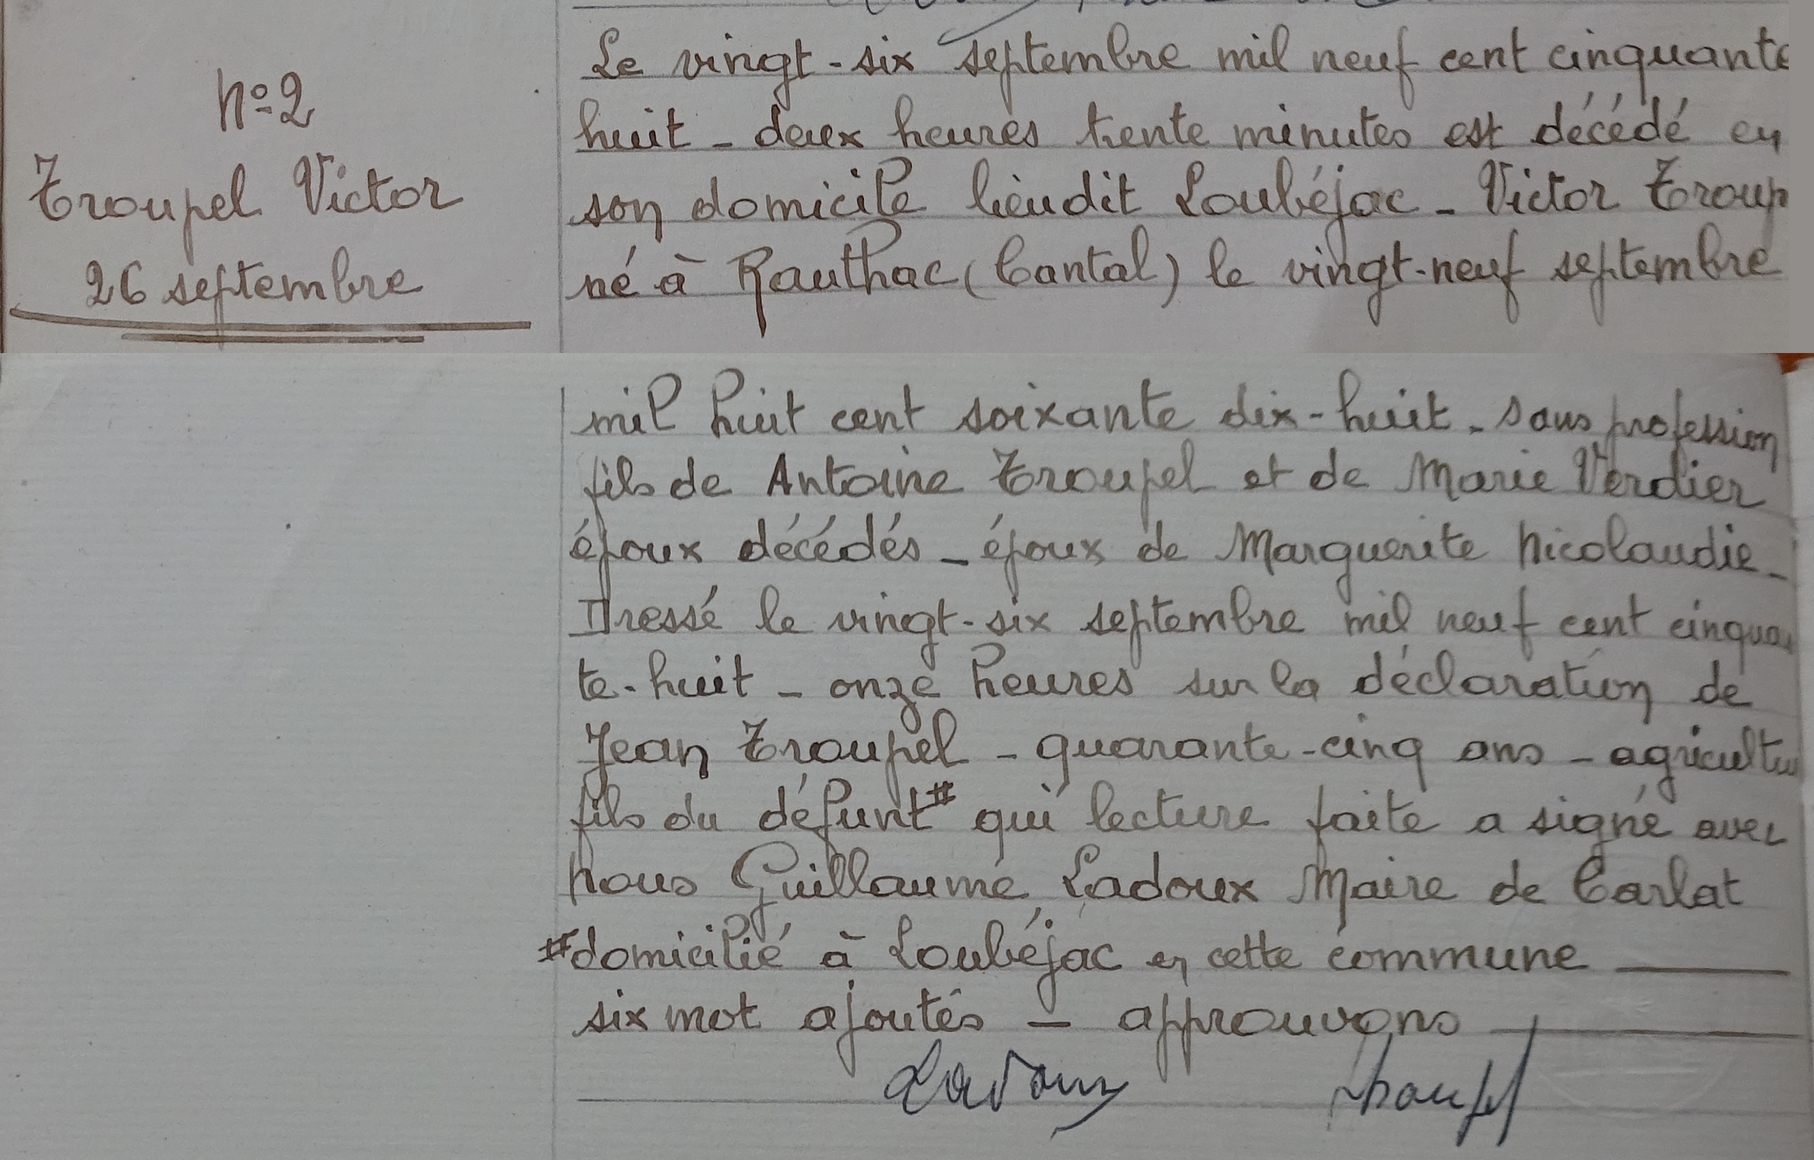 n° 2
Troupel Victor
26 septembre
Le vingt-six septembre mil neuf cent cinquante
huit - deux heures trente minutes est décédé en
son domicile lieudit Loubéjac - Victor Troup
né à Rauthac (Cantal) le vingt-neuf septembre
mil huit cent soixante dix-huit - sans profession
fils de Antoine Troupel et de Marie Verdier
époux décédés - époux de Marguerite Nicolaudie -
Dressé le vingt-six septembre mil neuf cent cinqua
te-huit - onze heures sur la déclaration de
Jean Troupel - quarante-cinq ans - agricultu
fils du défunt # qui lecture faite a signé avec
Nous Guillaume Ladoux Maire de Carlat
# domicilié à Loubéjac en cette commune
six mot ajoutés - approuvons
Ladoux Troupel